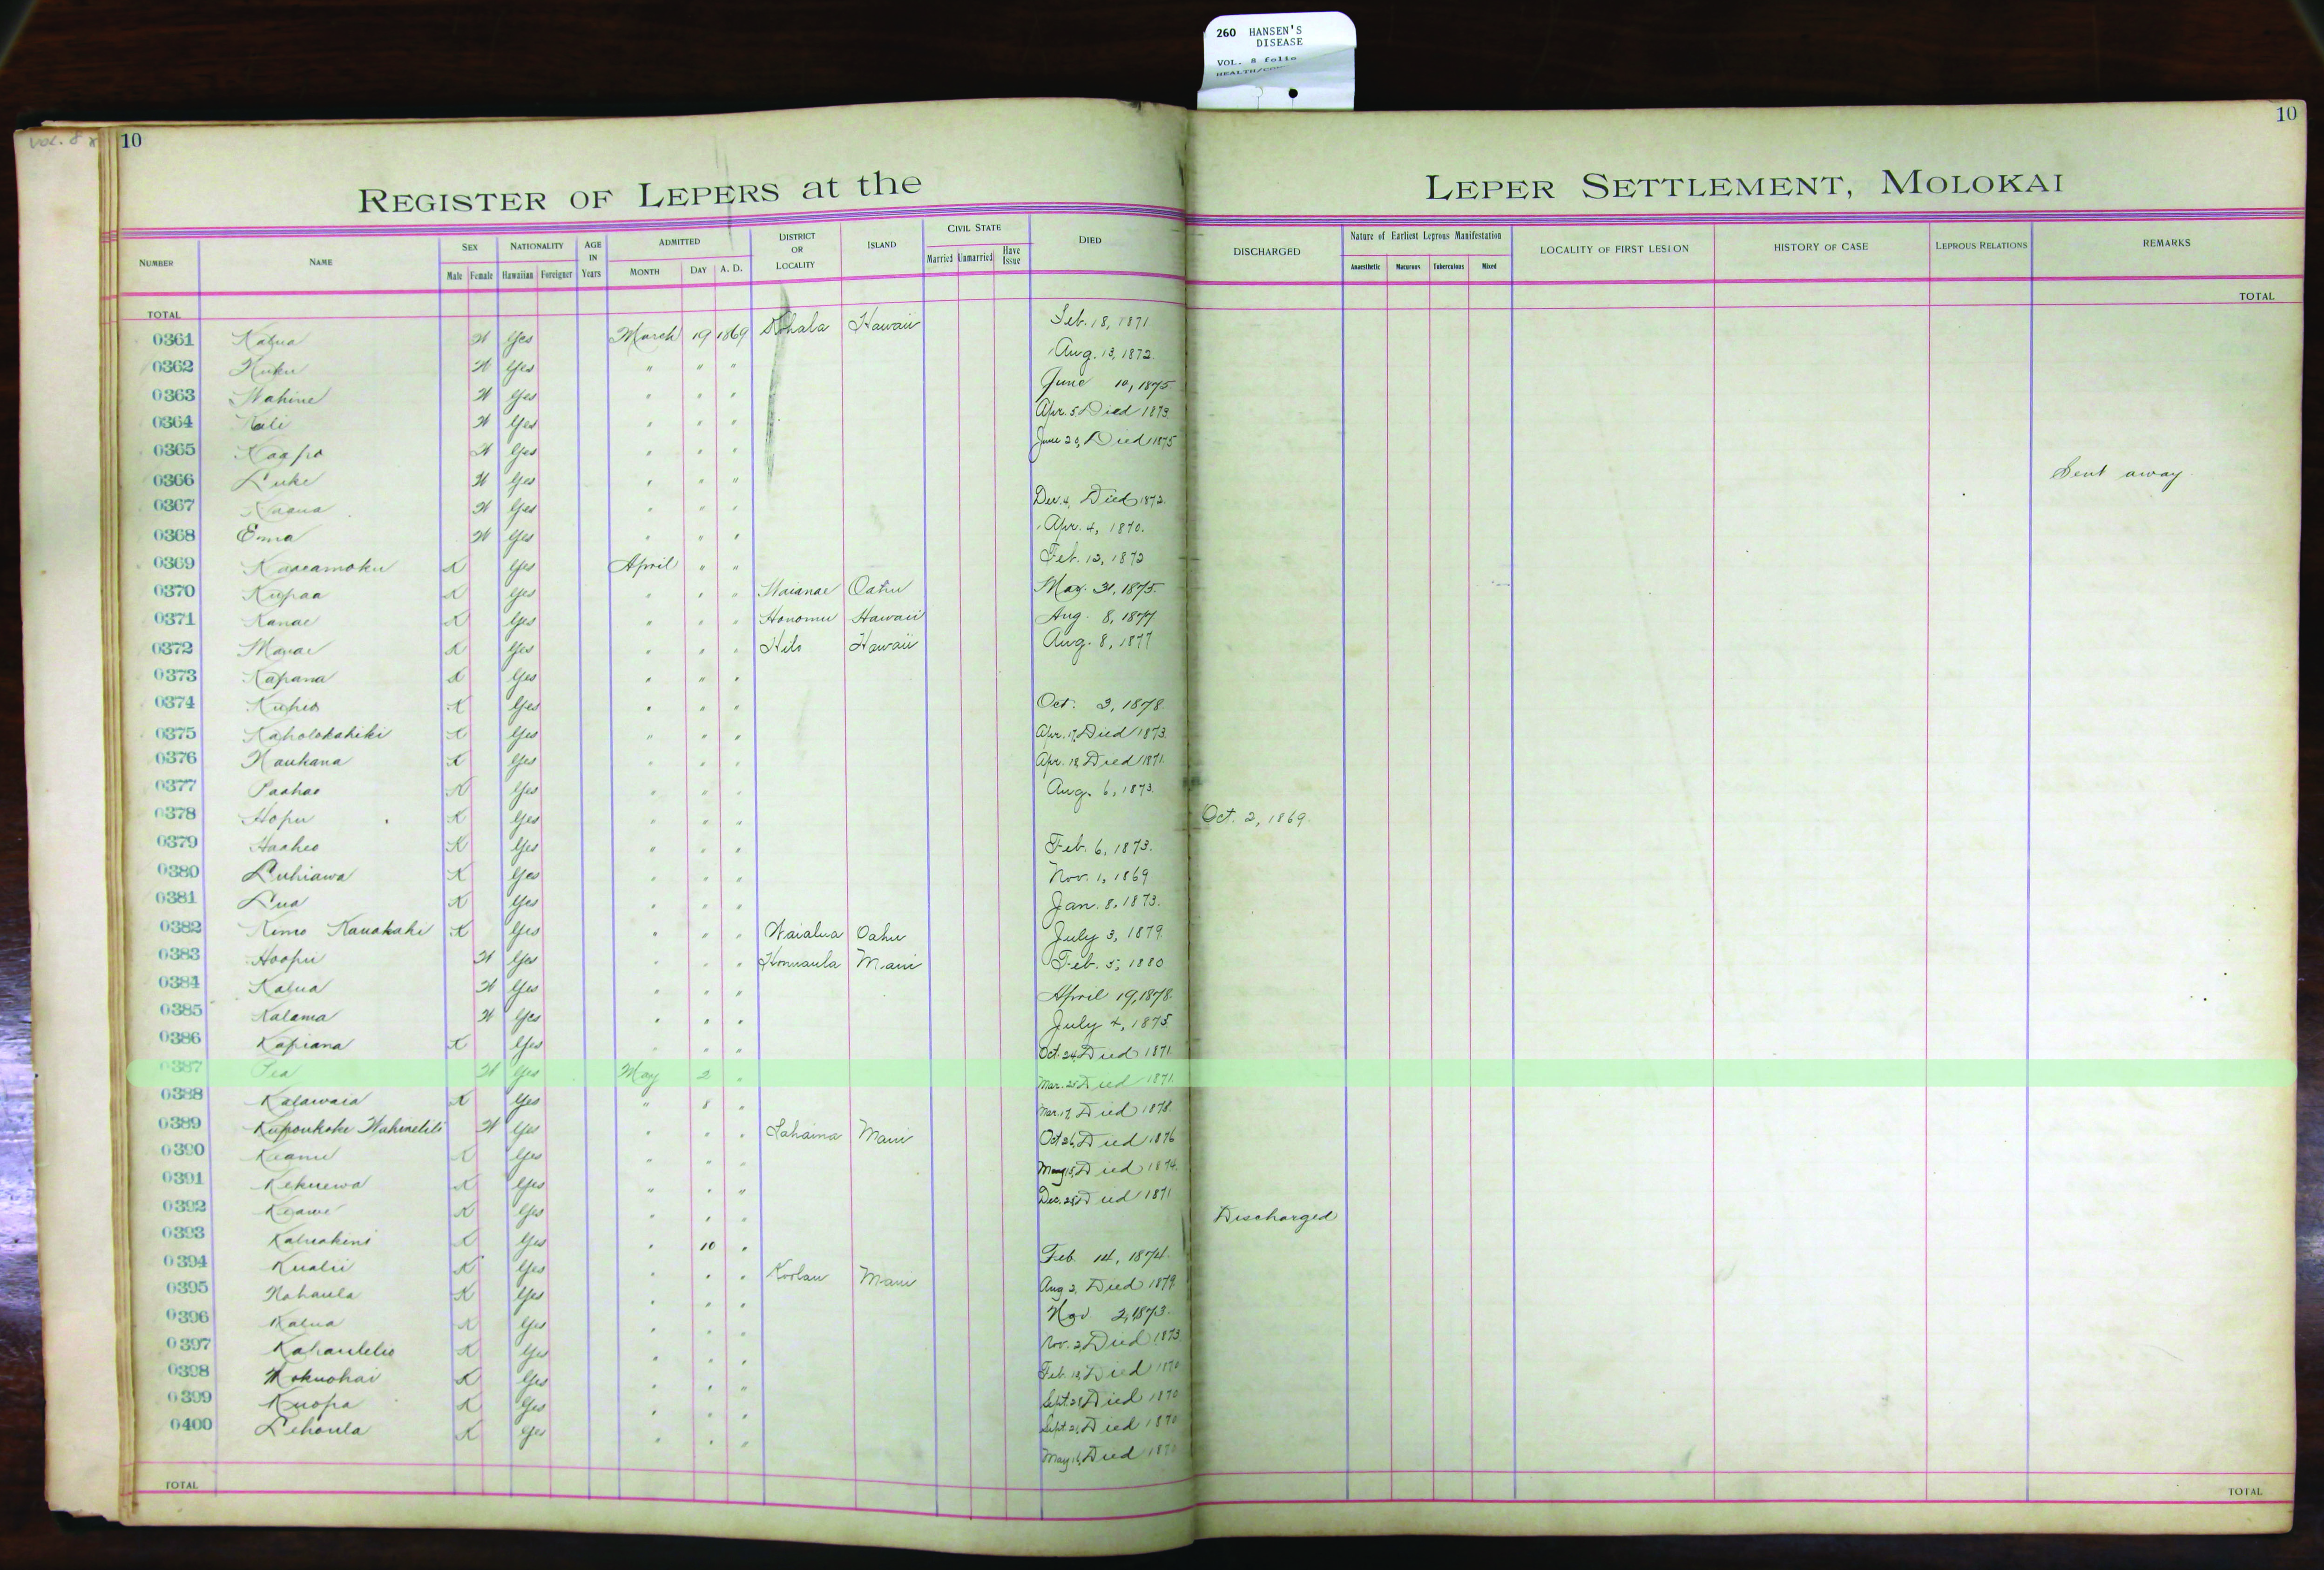 260 HANSEN'S
DISEASE
VOL. 8 folio
VOL. 8
10
10
REGISTER OF LEPERS at the LEPER SETTLEMENT, MOLOKAI
NUMBER NAME SEX NATIONALITY AGE IN Years ADMITTED DISTRICT OR LOCALITY ISLAND CIVIL STATE DIED DISCHARGED Nature of Earliest Leprous Manifestation LOCALITY OF FIRST LESION HISTORY OF CASE LEPROUS RELATIONS REMARKS
Male Female Hawaiian Foreigner MONTH DAY A. D. Married Unmarried Have Issue Anaesthetic Macurous Tuberculous Mixed
TOTAL TOTAL
0361 Kalua W Yes March 19 1869 Kohala Hawaii Feb. 18, 1871
0362 Kuku W Yes " " " Aug. 13, 1872.
0363 Wahine W Yes " " " June 10, 1875
0364 Kali W Yes " " " Apr. 5 Died 1873.
0365 Kaapo W Yes " " " June 29, Died 1875
0366 Luke W Yes " " " Sent away
0367 W Yes " " " Dec. 4, Died 1872.
0368 Ema W Yes " " " Apr. 4, 1870.
0369 Kaaeamoku K Yes April " " Feb. 12, 1872
0370 Kupaa K Yes " " " Waianae Oahu May. 31, 1875.
0371 Kanae K Yes " " " Honomu Hawaii Aug. 8, 1877
0372 K Yes " " " Hilo Hawaii Aug. 8, 1877
0373 Kapana K Yes " " "
0374 Kuheo K Yes " " " Oct. 3, 1878.
0375 Kaholokahiki K Yes " " " Apr. 17, Died 1873.
0376 Naukana K Yes " " " Apr. 18 Died 1871.
0377 Paahao K Yes " " " Aug. 6, 1873.
0378 Hopu K Yes " " " Oct. 2, 1869.
0379 Haaheo K Yes " " " Feb. 6, 1873.
0380 Luhiawa K Yes " " " Nov. 1, 1869
0381 Lua K Yes " " " Jan. 8, 1873.
0382 Kimo Kauakahi K Yes " " " Waialua Oahu July 3, 1879.
0383 Hoopii W Yes " " " Honuaula Maui Feb. 5, 1880
0384 Kalua W Yes " " " April 19, 1878.
0385 Kalama W Yes " " " July 4, 1875.
0386 Kapiana K Yes " " " Oct. 24, Died 1871.
0387 Pea W Yes May 2 " Mar. 25 Died 1871.
0388 Kalawaia K Yes " 8 " Mar. 17, Died 1878.
0389 Kupoukoke Wahinelili W Yes " " " Lahaina Maui Oct 26, Died 1876
0390 Keanu K Yes " " " May 15, Died 1874.
0391 Kekuewa K Yes " " " Dec. 25 Died 1871
0392 Keawe K Yes " " " Discharged
0393 K Yes " 10 " Feb. 14, 1874.
0394 Kualii K Yes " " " Koolau Maui Aug 2, Died 1879.
0395 Nohaula K Yes " " " Nov 2, 1873.
0396 Kalua K Yes " " " Nov. 2, Died 1873
0397 Kahaulelio K Yes " " " Feb. 18, Died 1870
0398 Mokuohai K Yes " " " Sept. 28 Died 1870
0399 Kuopa K Yes " " " Sept. 21, Died 1870
0400 Lehoula K Yes " " " May 16, Died 1870
TOTAL TOTAL